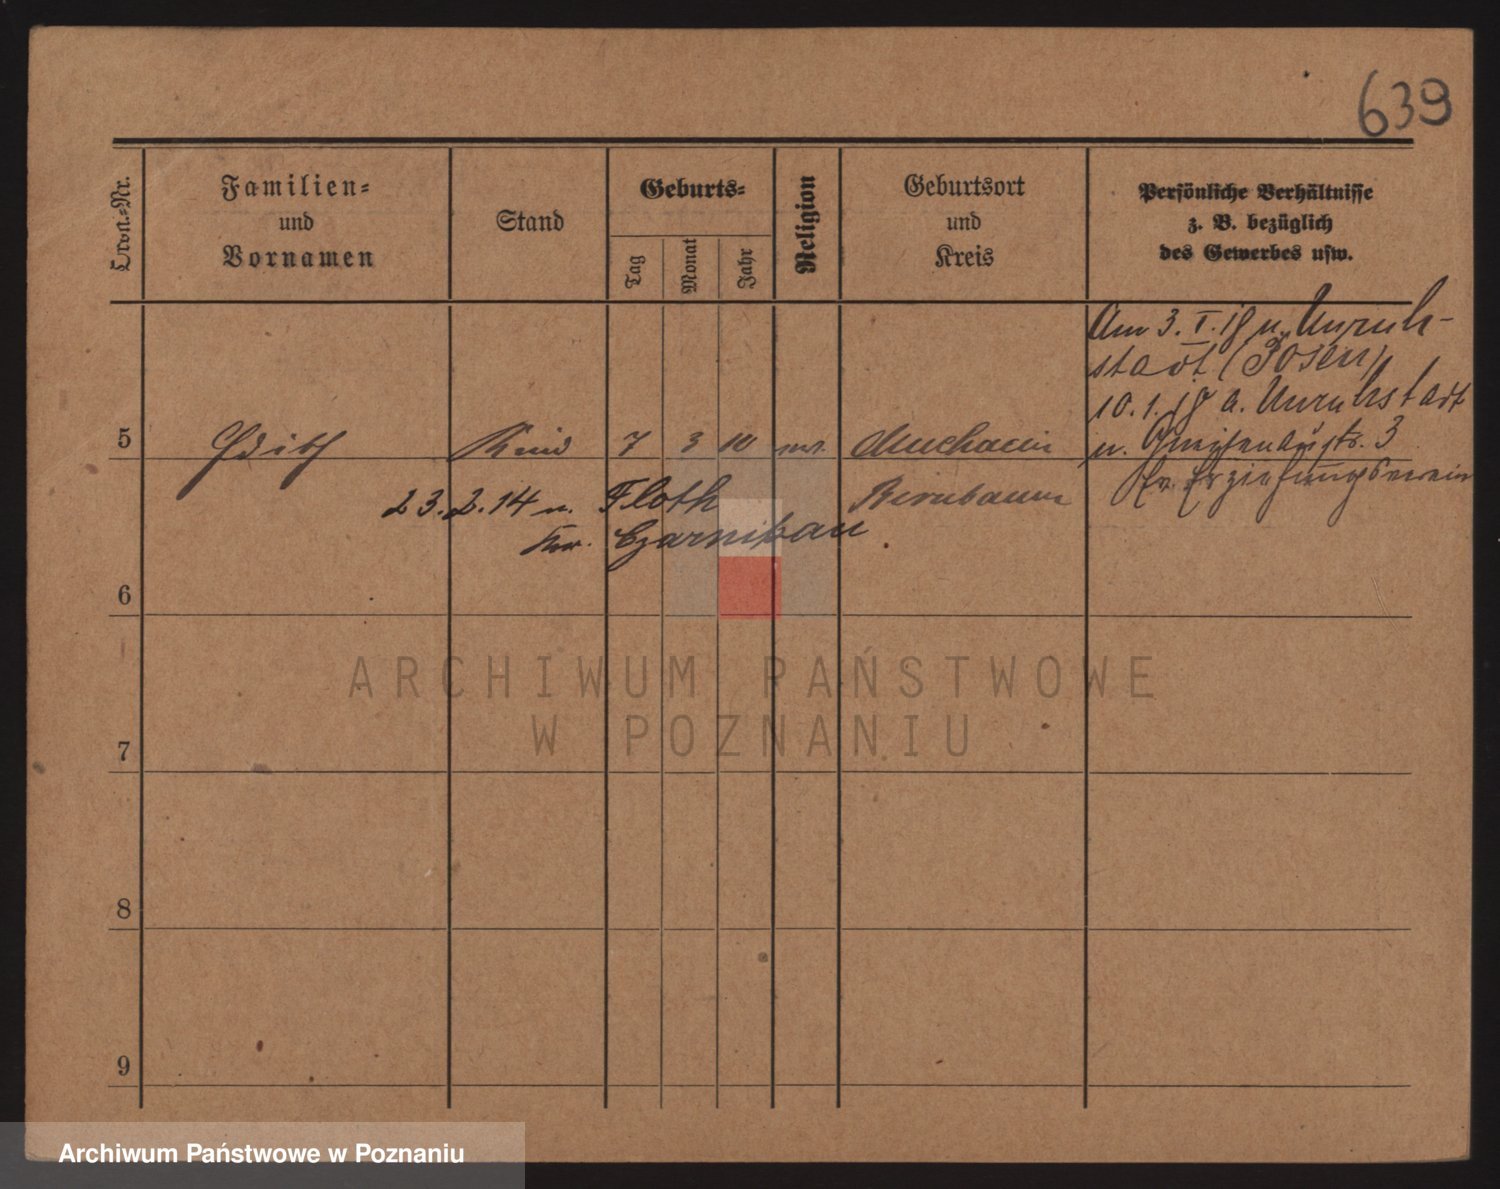 639
Familien=
und
Vornamen
Stand
Geburts=
Tag
Monat
Jahr
Religion
Geburtsort
und
Kreis
Persönliche Verhältnisse
z. B. bezüglich
des Gewerbes usw.
Am 3. I. 18 n. Unruh-
stadt (Posen)
10. 1. 18 a. Unruhstadt
5 Edith Kind 7 3 10 Muchocin
n. Gneisenaustr. 3
Ev. Erziehungsverein
23.2.14 n. Floth Birnbaum
Kr. Czarnikau
6
7
8
9
ARCHIWUM PAŃSTWOWE
W POZNANIU
Archiwum Państwowe w Poznaniu